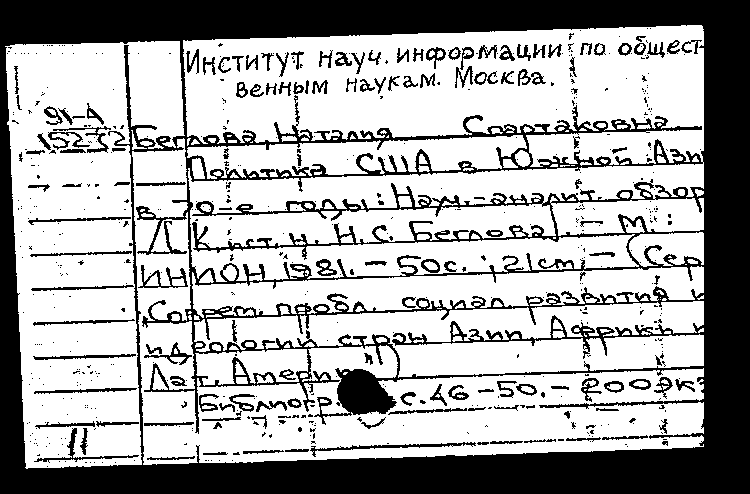 Институт науч. информации по общест-
венным наукам. Москва.
91-4
15272 Беглова, Наталия Спартаковна
Политика США в Южной Ази
в 70-е годы: Науч.-аналит. обзор
/[К. ист. н. Н.С. Беглова]. – М.:
ИНИОН, 1981. – 50с.; 21cm. – (Сер
"Соврем. пробл. социал. развития и
идеологии стран Азии, Африки и
Лат. Америки").
Библиогр. с. 46-50. – 200 экз
11